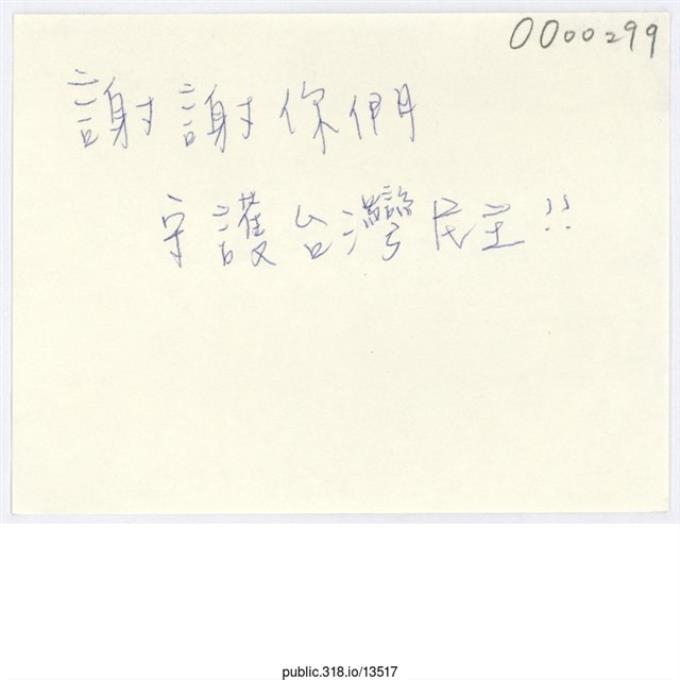 0000299
謝謝你們
守護台灣民主!!
public.318.io/13517